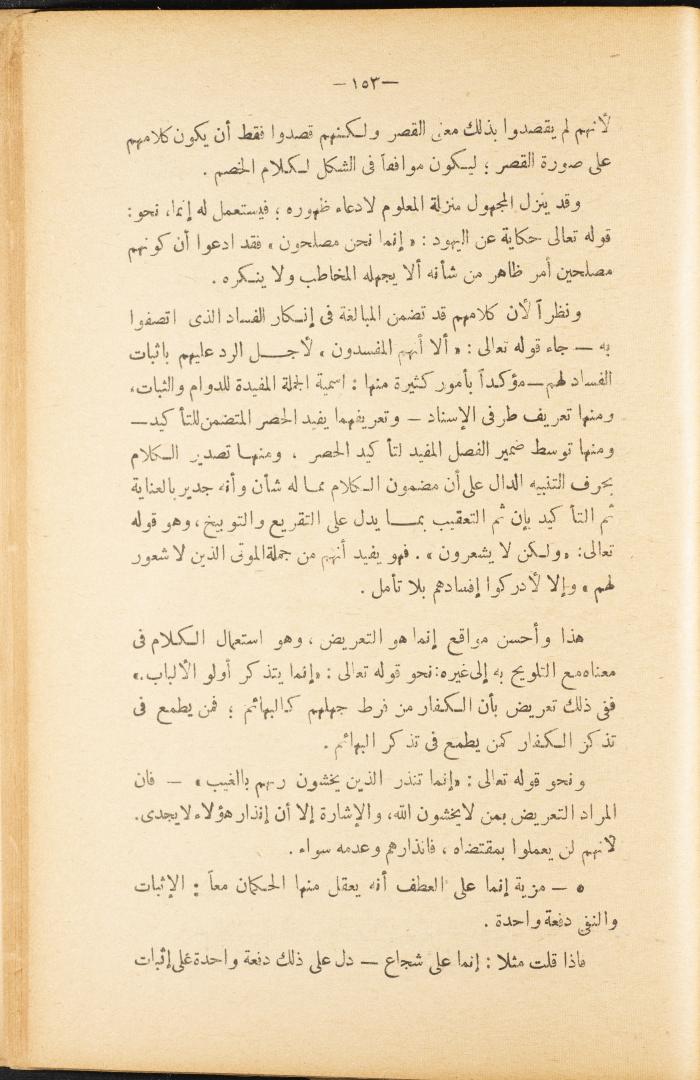 —١٥٣—
لأنهم لم يقصدوا بذلك معنى القصر ولكنهم قصدوا فقط أن يكون كلامهم
على صورة القصر ؛ ليكون موافقاً فى الشكل لكلام الخصم .
وقد ينزل المجهول منزلة المعلوم لادعاء ظهوره ؛ فيستعمل له إنما، نحو:
قوله تعالى حكاية عن اليهود : « إنما نحن مصلحون » فقد ادعوا أن كونهم
مصلحين أمر ظاهر من شأنه ألا يجهله المخاطب ولا ينكره .
ونظراً لأن كلامهم قد تضمن المبالغة فى إنكار الفساد الذى اتصفوا
به — جاء قوله تعالى : « ألا أنهم المفسدون » لأجل الرد عليهم باثبات
الفساد لهم — مؤكداً بأمور كثيرة منها : اسمية الجملة المفيدة للدوام والثبات،
ومنها تعريف طرفى الإسناد — وتعريفهما يفيد الحصر المتضمن للتأكيد —
ومنها توسط ضمير الفصل المفيد لتأكيد الحصر ، ومنها تصدير الكلام
بحرف التنبيه الدال على أن مضمون الكلام مما له شأن وأنه جدير بالعناية
ثم التأكيد بإن ثم التعقيب بما يدل على التقريع والتوبيخ، وهو قوله
تعالى: «ولكن لا يشعرون» . فهو يفيد أنهم من جملة الموتى الذين لا شعور
لهم » وإلا لأدركوا إفسادهم بلا تأمل .
هذا وأحسن مواقع إنما هو التعريض ، وهو استعمال الكلام فى
معناه مع التلويح به إلى غيره: نحو قوله تعالى : «إنما يتذكر أولو الألباب.»
ففى ذلك تعريض بأن الكفار من فرط جهلهم كالبهائم ؛ فمن يطمع فى
تذكر الكفار كمن يطمع فى تذكر البهائم .
ونحو قوله تعالى : «إنما تنذر الذين يخشون ربهم بالغيب» — فان
المراد التعريض بمن لا يخشون الله، والإشارة إلا أن إنذار هؤلاء لا يجدى.
لأنهم لن يعملوا بمقتضاه ، فانذارهم وعدمه سواء .
٥ — مزية إنما على العطف أنه يعقل منها الحكمان معاً : الإثبات
والنفى دفعة واحدة .
فاذا قلت مثلا : إنما على شجاع — دل على ذلك دفعة واحدة على إثبات